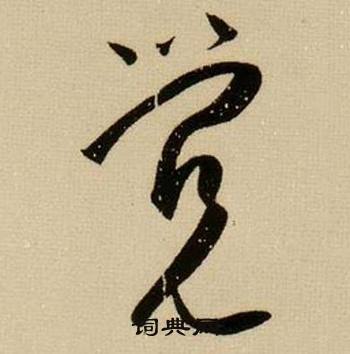 觉
词典网